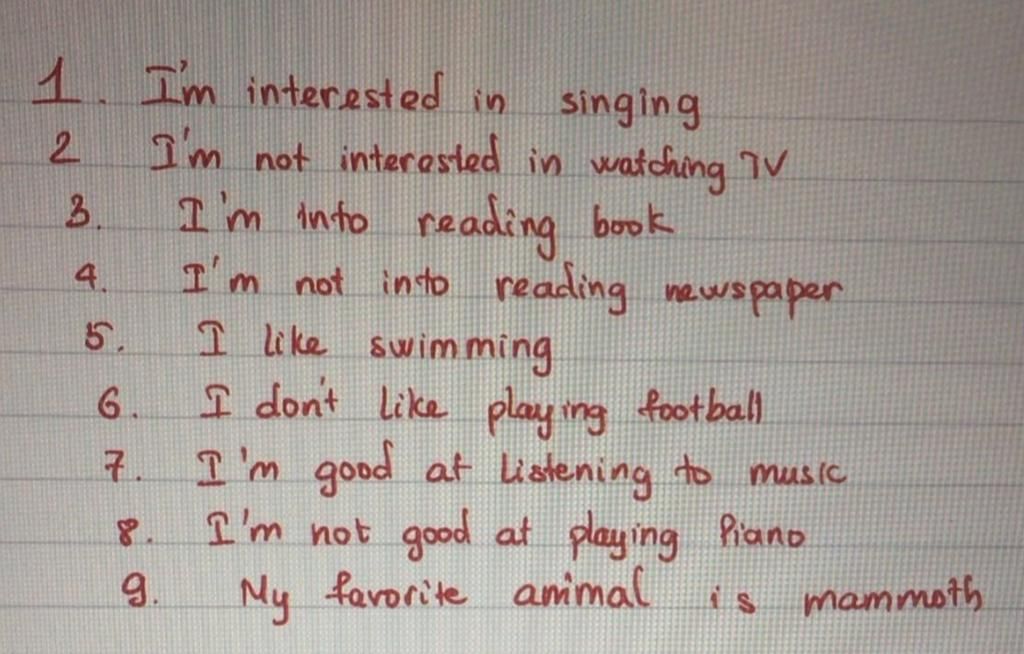 1. I'm interested in singing
2 I'm not interested in watching TV
3. I'm into reading book
4. I'm not into reading newspaper
5. I like swimming
6. I don't like playing football
7. I'm good at listening to music
8. I'm not good at playing Piano
9. My favorite animal is mammoth